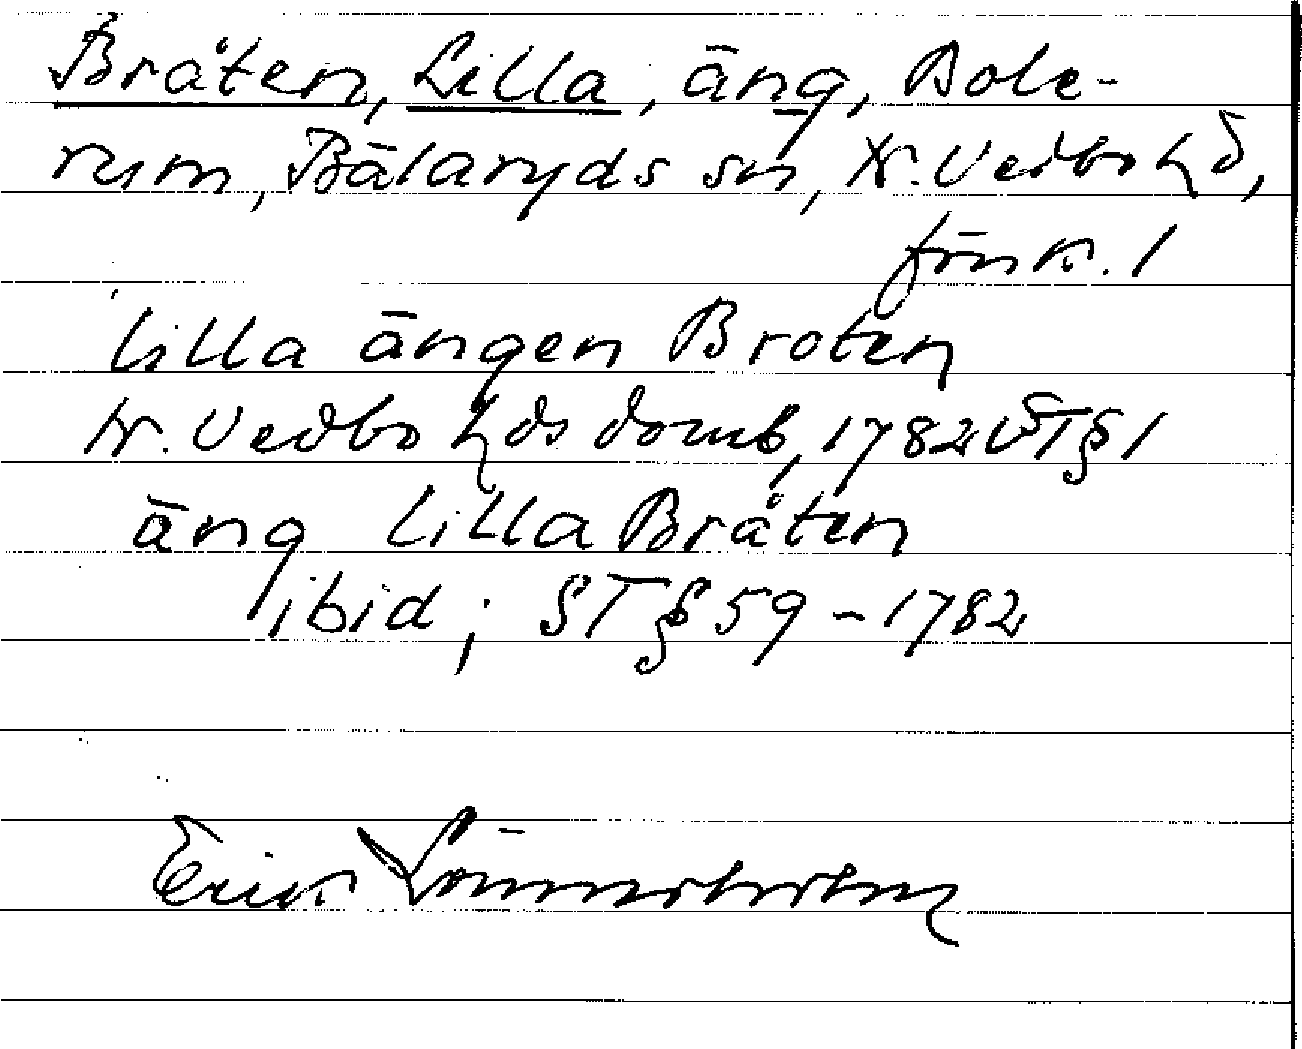 Bråten, Lilla, äng, Bole-
rum, Bälaryds sn, N. Vedbo hd,
Jönk. l
lilla ängen Broten
N. Vedbo hds domb, 1782 VT § 1
äng lilla Bråten
ibid; ST § 59 - 1782
Erik